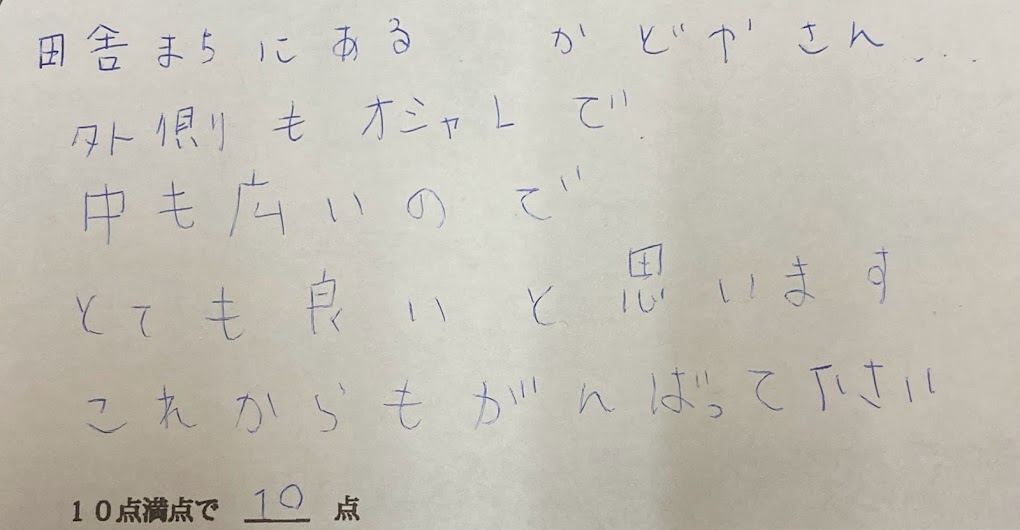 田舎まちにある かどやさん...
外側もオシャレで
中も広いので
とても良いと思います
これからもがんばって下さい
10点満点で 10 点